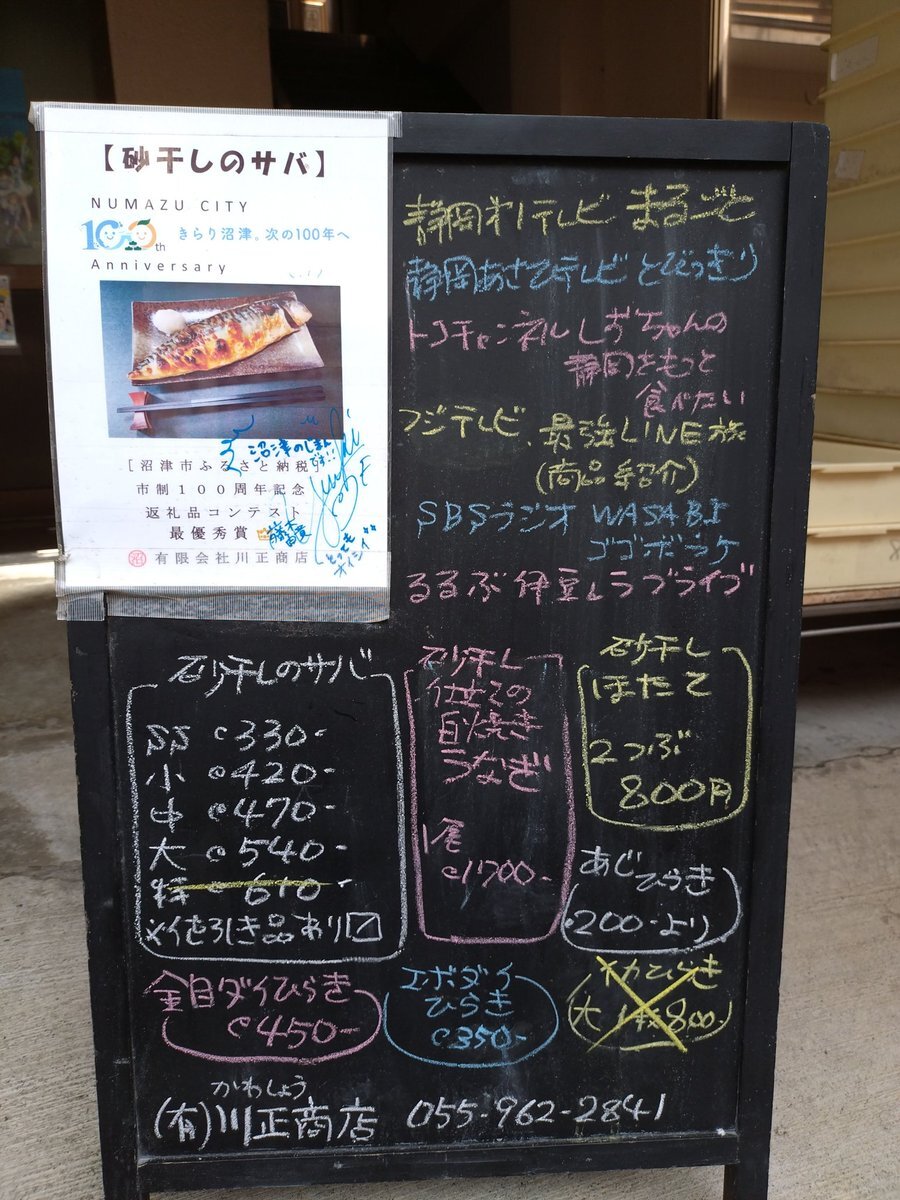 【砂干しのサバ】
NUMAZU CITY
100th
きらり沼津。次の100年へ
Anniversary
沼津のじまん
です!!
[沼津市ふるさと納税]
市制100周年記念
返礼品コンテスト
最優秀賞
有限会社川正商店
とっても
オイシイ
静岡第1テレビ まるごと
静岡あさひテレビ とびっきり
トコチャンネル しずちゃんの
静岡をもっと
食べたい
フジテレビ、最強LINE族
(商品紹介)
SBSラジオ WASABI
ゴゴボラケ
るるぶ 伊豆&ラブライブ
砂干しのサバ
SS 330-
小 420-
中 470-
大 540-
特 610-
砂干し
仕立ての
白焼き
うなぎ
1尾
1700-
砂干し
ほたて
2つぶ
800円
あじ
ひらき
200-より
金目ダイひらき
450-
エボダイ
ひらき
350-
イカひらき
大 1枚800-
かわしょう
(有)川正商店 055-962-2841